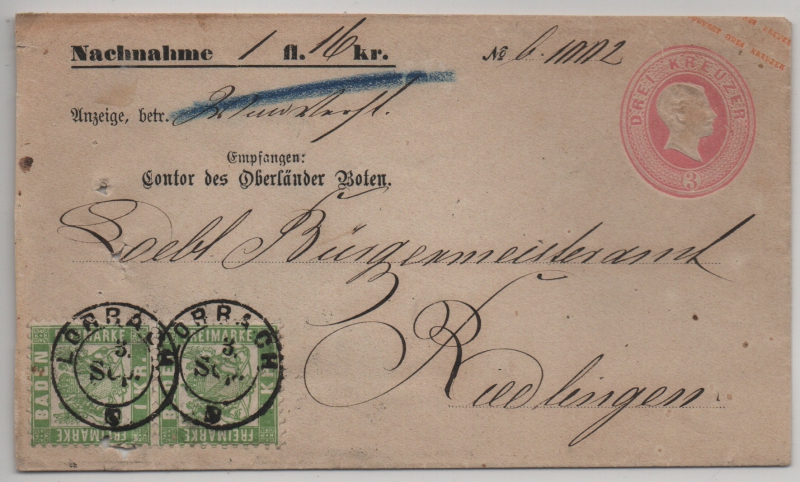 Nachnahme 1 fl. 16 kr. № 6. 1002
Anzeige, betr.
Empfangen:
Contor des Oberländer Boten.
DREI KREUZER
3
Loebl. Bürgermeisteramt
Riedlingen
LÖRRACH
3.
Sep.
LÖRRACH
3.
Sep.
BADEN
FREIMARKE
FREIMARKE
FREIMARKE
FREIMARKE